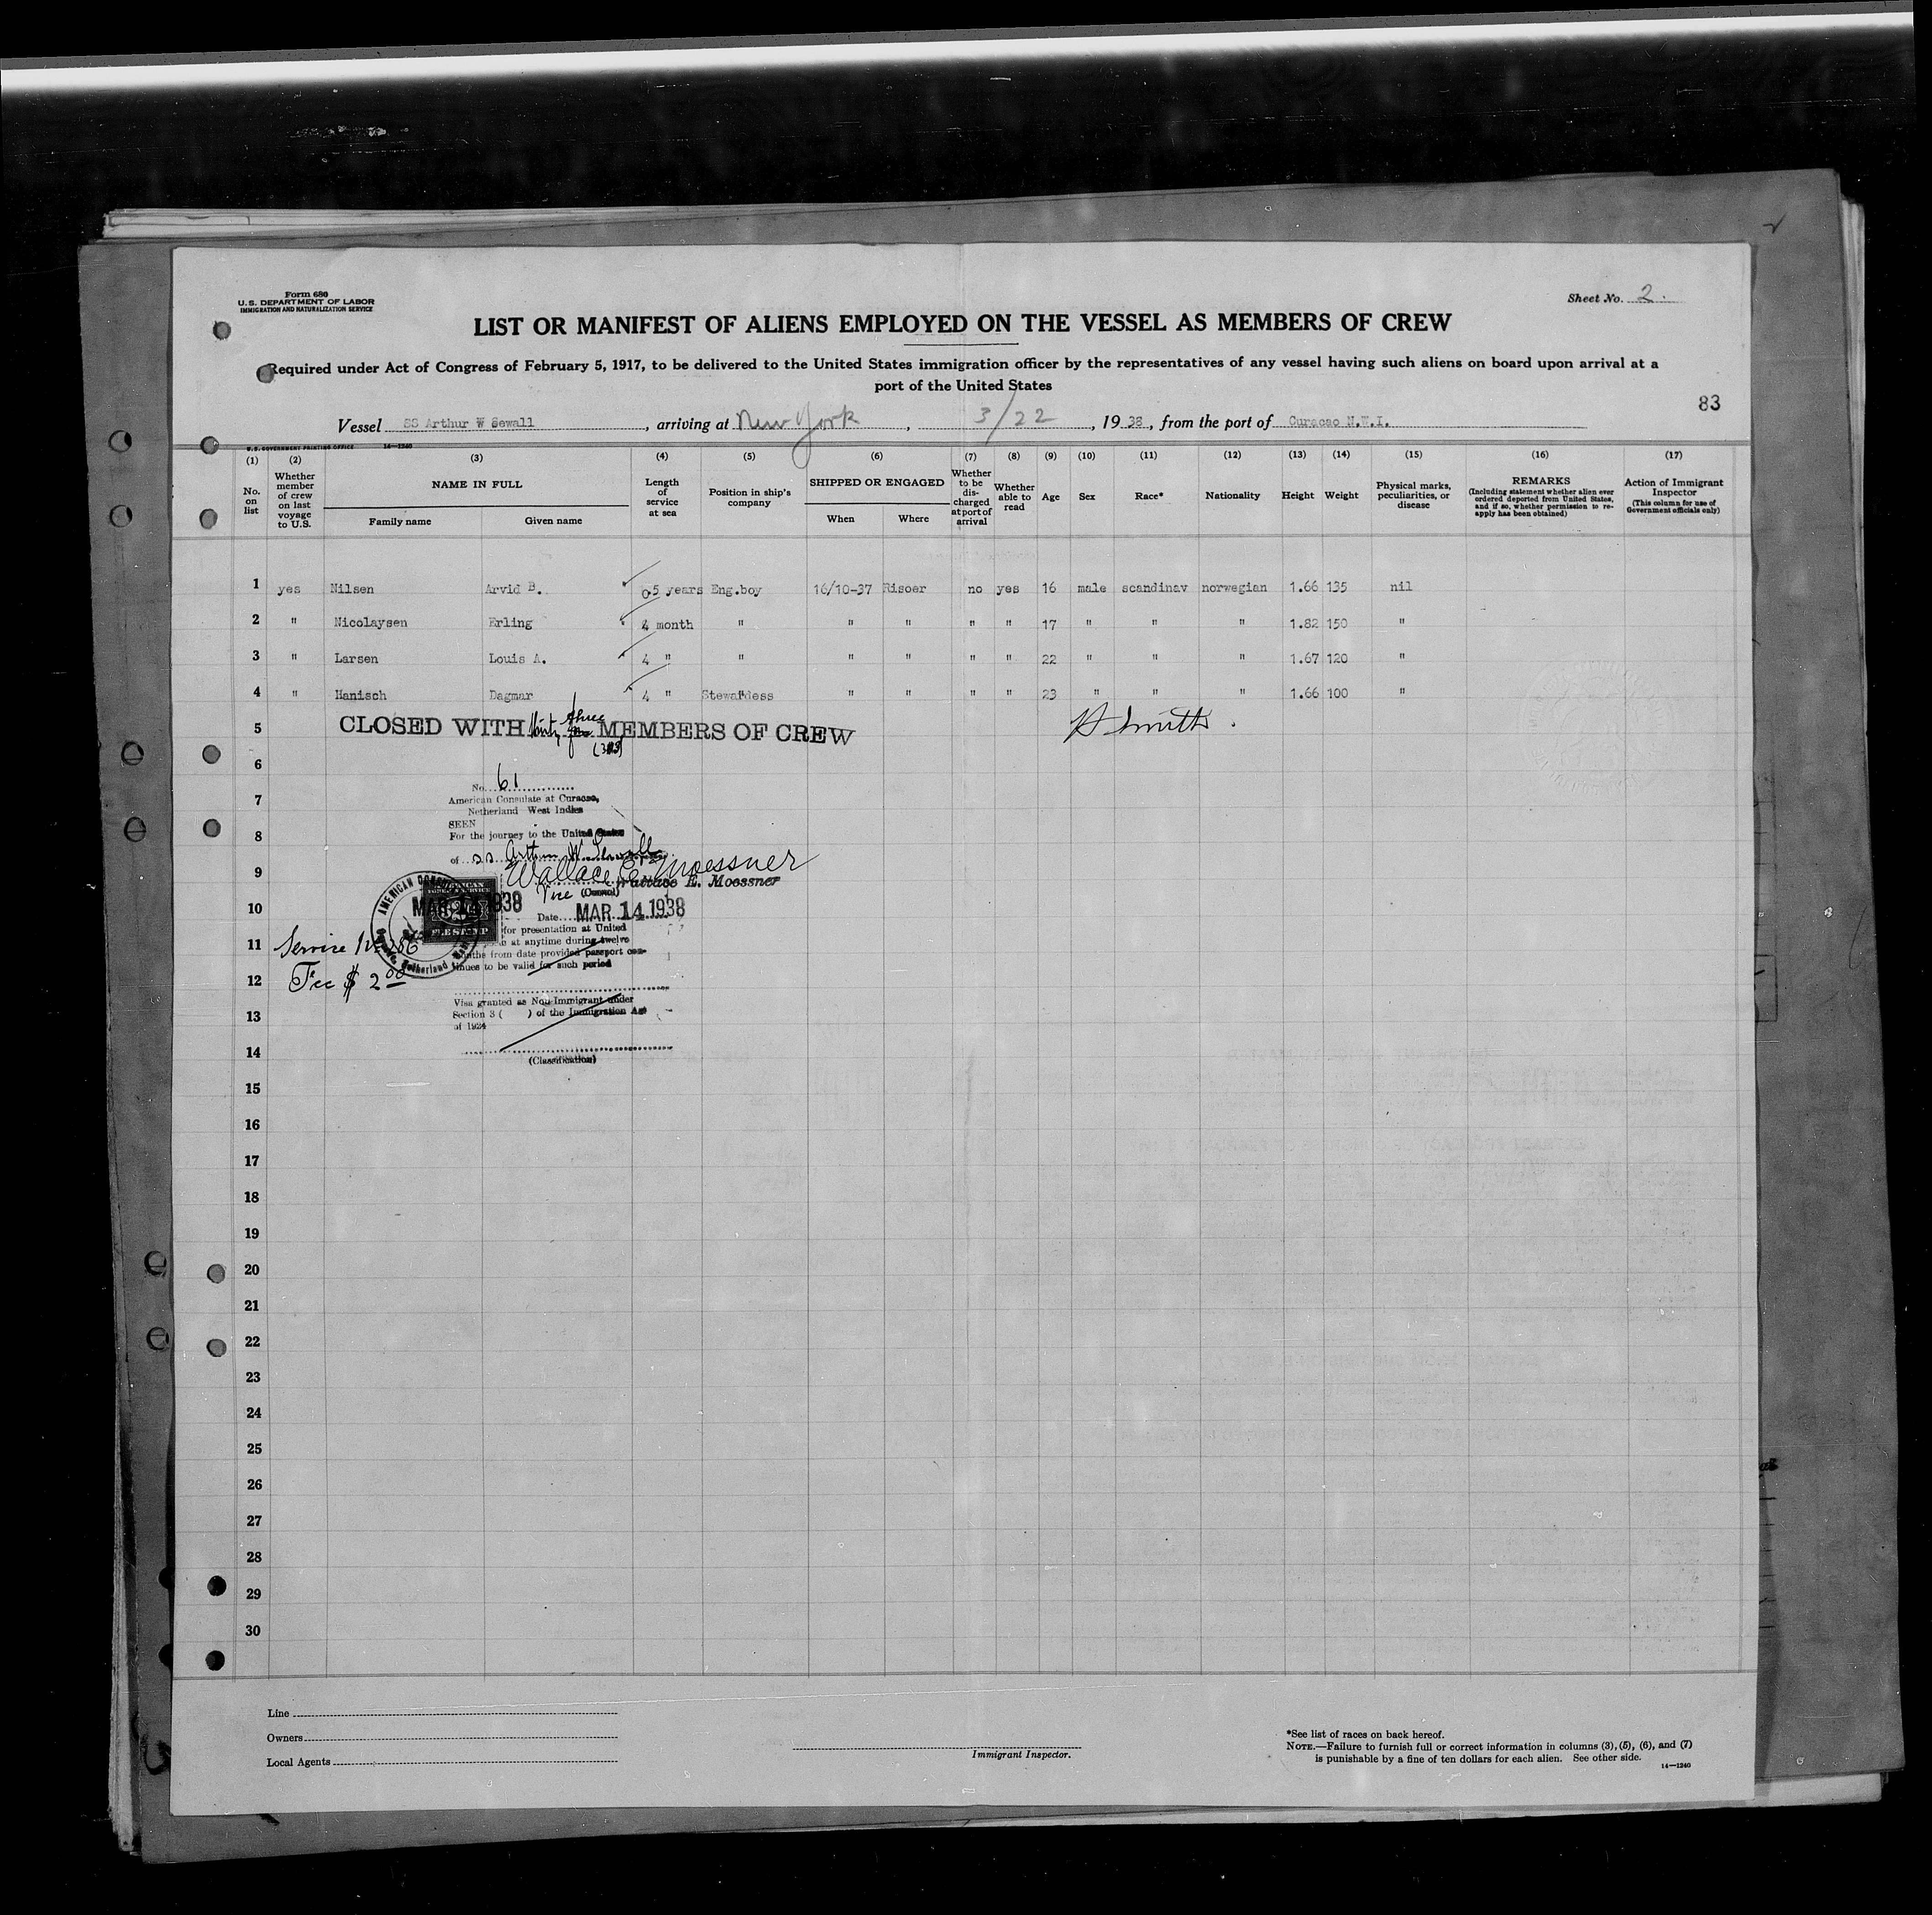 Form 680
U.S. DEPARTMENT OF LABOR
IMMIGRATION AND NATURALIZATION SERVICE
Sheet No. 2.
LIST OR MANIFEST OF ALIENS EMPLOYED ON THE VESSEL AS MEMBERS OF CREW
Required under Act of Congress of February 5, 1917, to be delivered to the United States immigration officer by the representatives of any vessel having such aliens on board upon arrival at a
port of the United States
83
Vessel SS Arthur W Sewall, arriving at New York, 3/22, 1938, from the port of Curacao N.W.I.
U.S. GOVERNMENT PRINTING OFFICE 14—1240
(1) (2) (3) (4) (5) (6) (7) (8) (9) (10) (11) (12) (13) (14) (15) (16) (17)
No. on list
Whether member of crew on last voyage to U.S.
NAME IN FULL
Family name
Given name
Length of service at sea
Position in ship's company
SHIPPED OR ENGAGED
When
Where
Whether to be discharged at port of arrival
Whether able to read
Age
Sex
Race*
Nationality
Height
Weight
Physical marks, peculiarities, or disease
REMARKS
(Including statement whether alien ever ordered deported from United States, and if so, whether permission to reapply has been obtained)
Action of Immigrant Inspector
(This column for use of Government officials only)
1 yes Nilsen Arvid B. 0.5 years Eng.boy 16/10-37 Risoer no yes 16 male scandinav norwegian 1.66 135 nil
2 " Nicolaysen Erling 4 month " " " " " 17 " " " 1.82 150 "
3 " Larsen Louis A. 4 " " " " " " 22 " " " 1.67 120 "
4 " Hanisch Dagmar 4 " Stewardess " " " " 23 " " " 1.66 100 "
5 CLOSED WITH thirty three MEMBERS OF CREW H Smith.
6
No. 61
7 American Consulate at Curacao,
Netherland West Indies
SEEN
8 For the journey to the United States
of ss Arthur W Sewall
9 Wallace E. Moessner
Wallace E. Moessner
Vice (Consul)
10 MAR 14 1938
Date MAR 14 1938
for presentation at United
11 at anytime during twelve
months from date provided passport con-
tinues to be valid for such period
Service No 286
12 Fee $ 2.00
Visa granted as Non-Immigrant under
13 Section 3 ( ) of the Immigration Act
of 1924
14
(Classification)
15
16
17
18
19
20
21
22
23
24
25
26
27
28
29
30
Line
Owners
Local Agents
Immigrant Inspector.
*See list of races on back hereof.
NOTE.—Failure to furnish full or correct information in columns (3), (5), (6), and (7)
is punishable by a fine of ten dollars for each alien. See other side.
14—1240